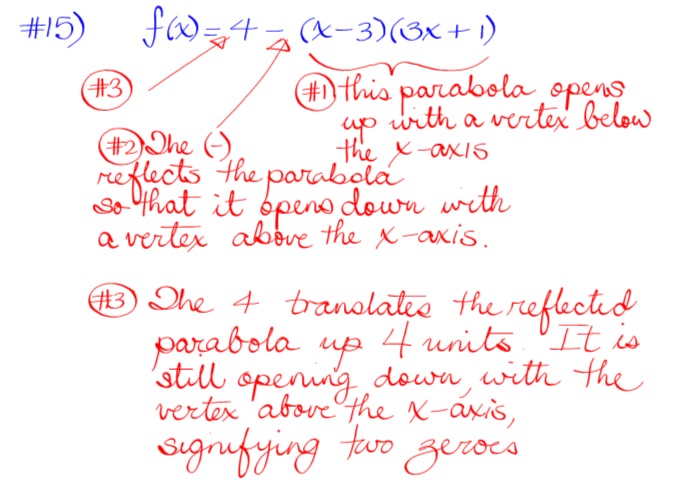 #15) f(x) = 4 - (x-3)(3x+1)
#3
#1 this parabola opens
up with a vertex below
the x-axis
#2 The (-)
reflects the parabola
so that it opens down with
a vertex above the x-axis.
#3 The 4 translates the reflected
parabola up 4 units. It is
still opening down, with the
vertex above the x-axis,
signifying two zeroes